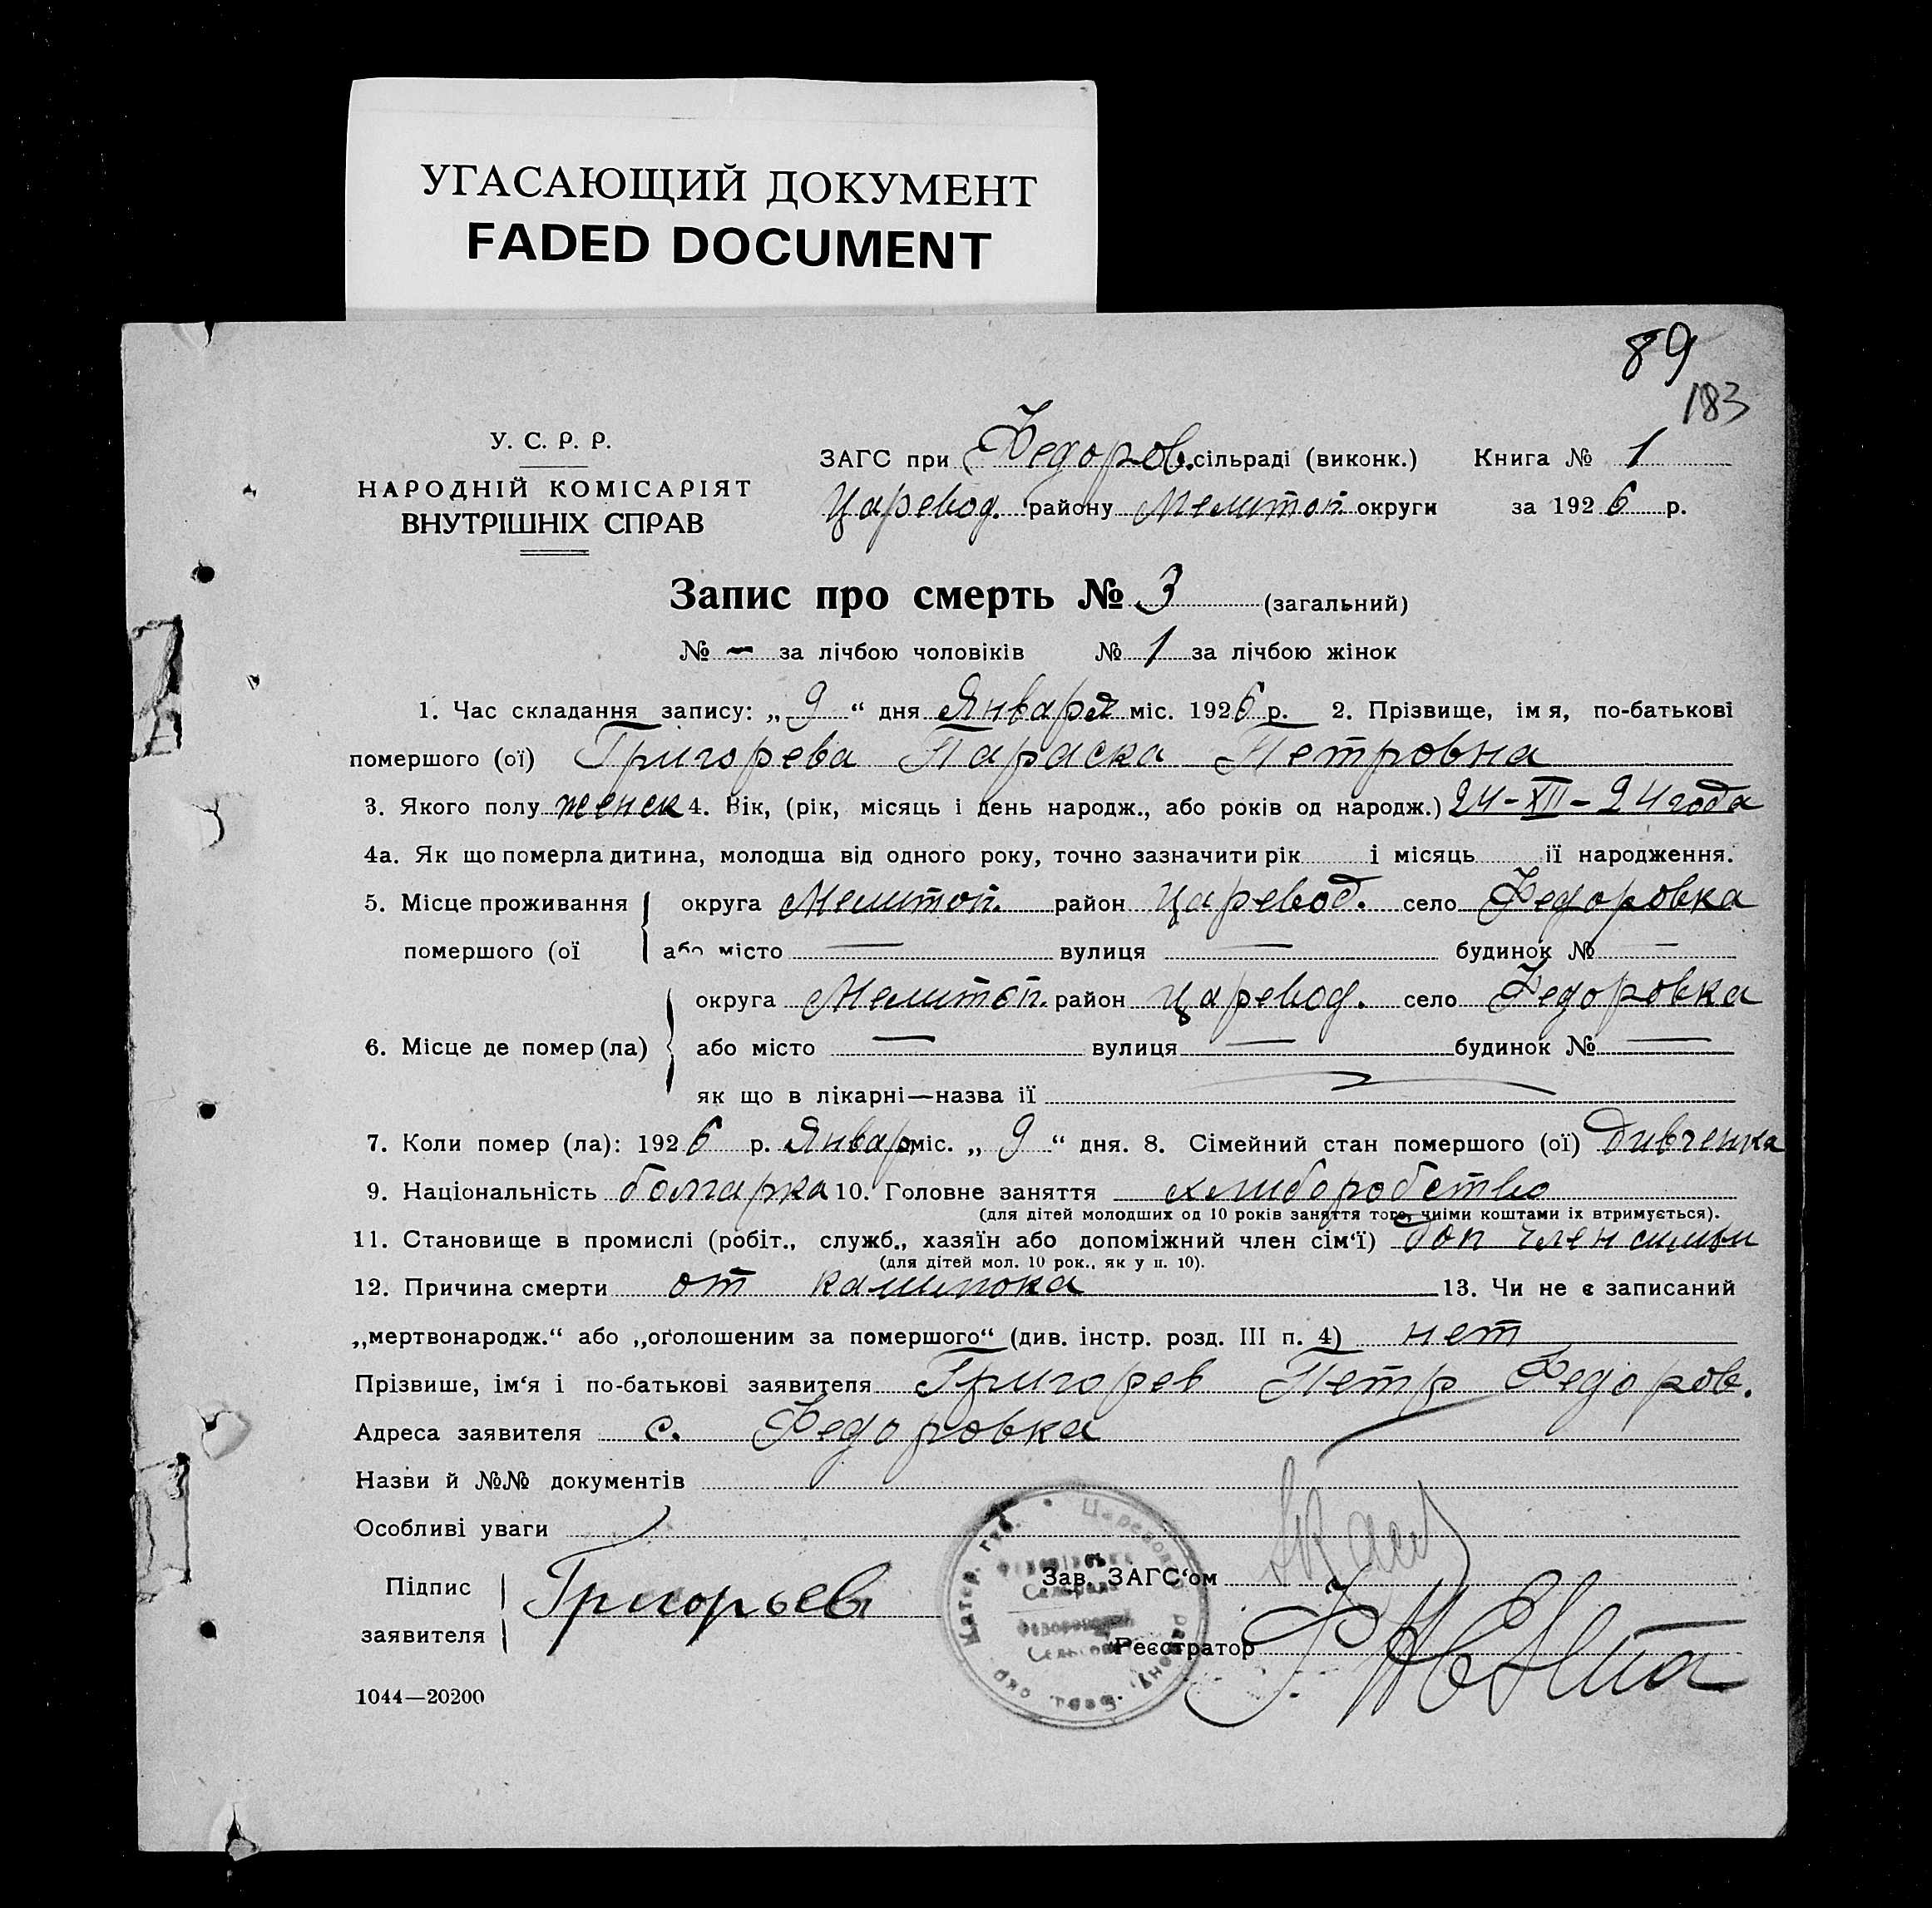 УГАСАЮЩИЙ ДОКУМЕНТ
FADED DOCUMENT
89
183
У. С. Р. Р.
НАРОДНІЙ КОМІСАРІЯТ
ВНУТРІШНІХ СПРАВ
ЗАГС при Федоров. сільраді (виконк.) Книга № 1
Царевод. району Мелитоп. округи за 1926 р.
Запис про смерть № 3 (загальний)
№ - за лічбою чоловіків № 1 за лічбою жінок
1. Час складання запису: „9“ дня Января міс. 1926 р. 2. Прізвище, імя, по-батькові
помершого (ої) Григорева Параска Петровна
3. Якого полу женск 4. Вік, (рік, місяць і день народж., або років од народж.) 24-XII-24 года
4а. Як що померла дитина, молодша від одного року, точно зазначити рік і місяць її народження.
5. Місце проживання округа Мелитоп. район Царевод. село Федоровка
помершого (ої або місто — вулиця — будинок № —
округа Мелитоп. район Царевод. село Федоровка
6. Місце де помер (ла) або місто — вулиця — будинок № —
як що в лікарні—назва її
7. Коли помер (ла): 1926 р. Январ міс. „9“ дня. 8. Сімейний стан помершого (ої) дивченка
9. Національність болгарка 10. Головне заняття хлиборобство
(для дітей молодших од 10 років заняття того, чиїми коштами їх втримується).
11. Становище в промислі (робіт., служб., хазяїн або допоміжний член сім‘ї) доп член симьи
(для дітей мол. 10 рок., як у п. 10).
12. Причина смерти от кашлюка 13. Чи не є записаний
„мертвонародж.“ або „оголошеним за помершого“ (див. інстр. розд. III п. 4) нет
Прізвише, ім‘я і по-батькові заявителя Григорев Петр Федоров.
Адреса заявителя с. Федоровка
Назви й №№ документів
Особливі уваги
Підпис
заявителя
Григорьев
Зав. ЗАГС‘ом
Реєстратор
1044—20200